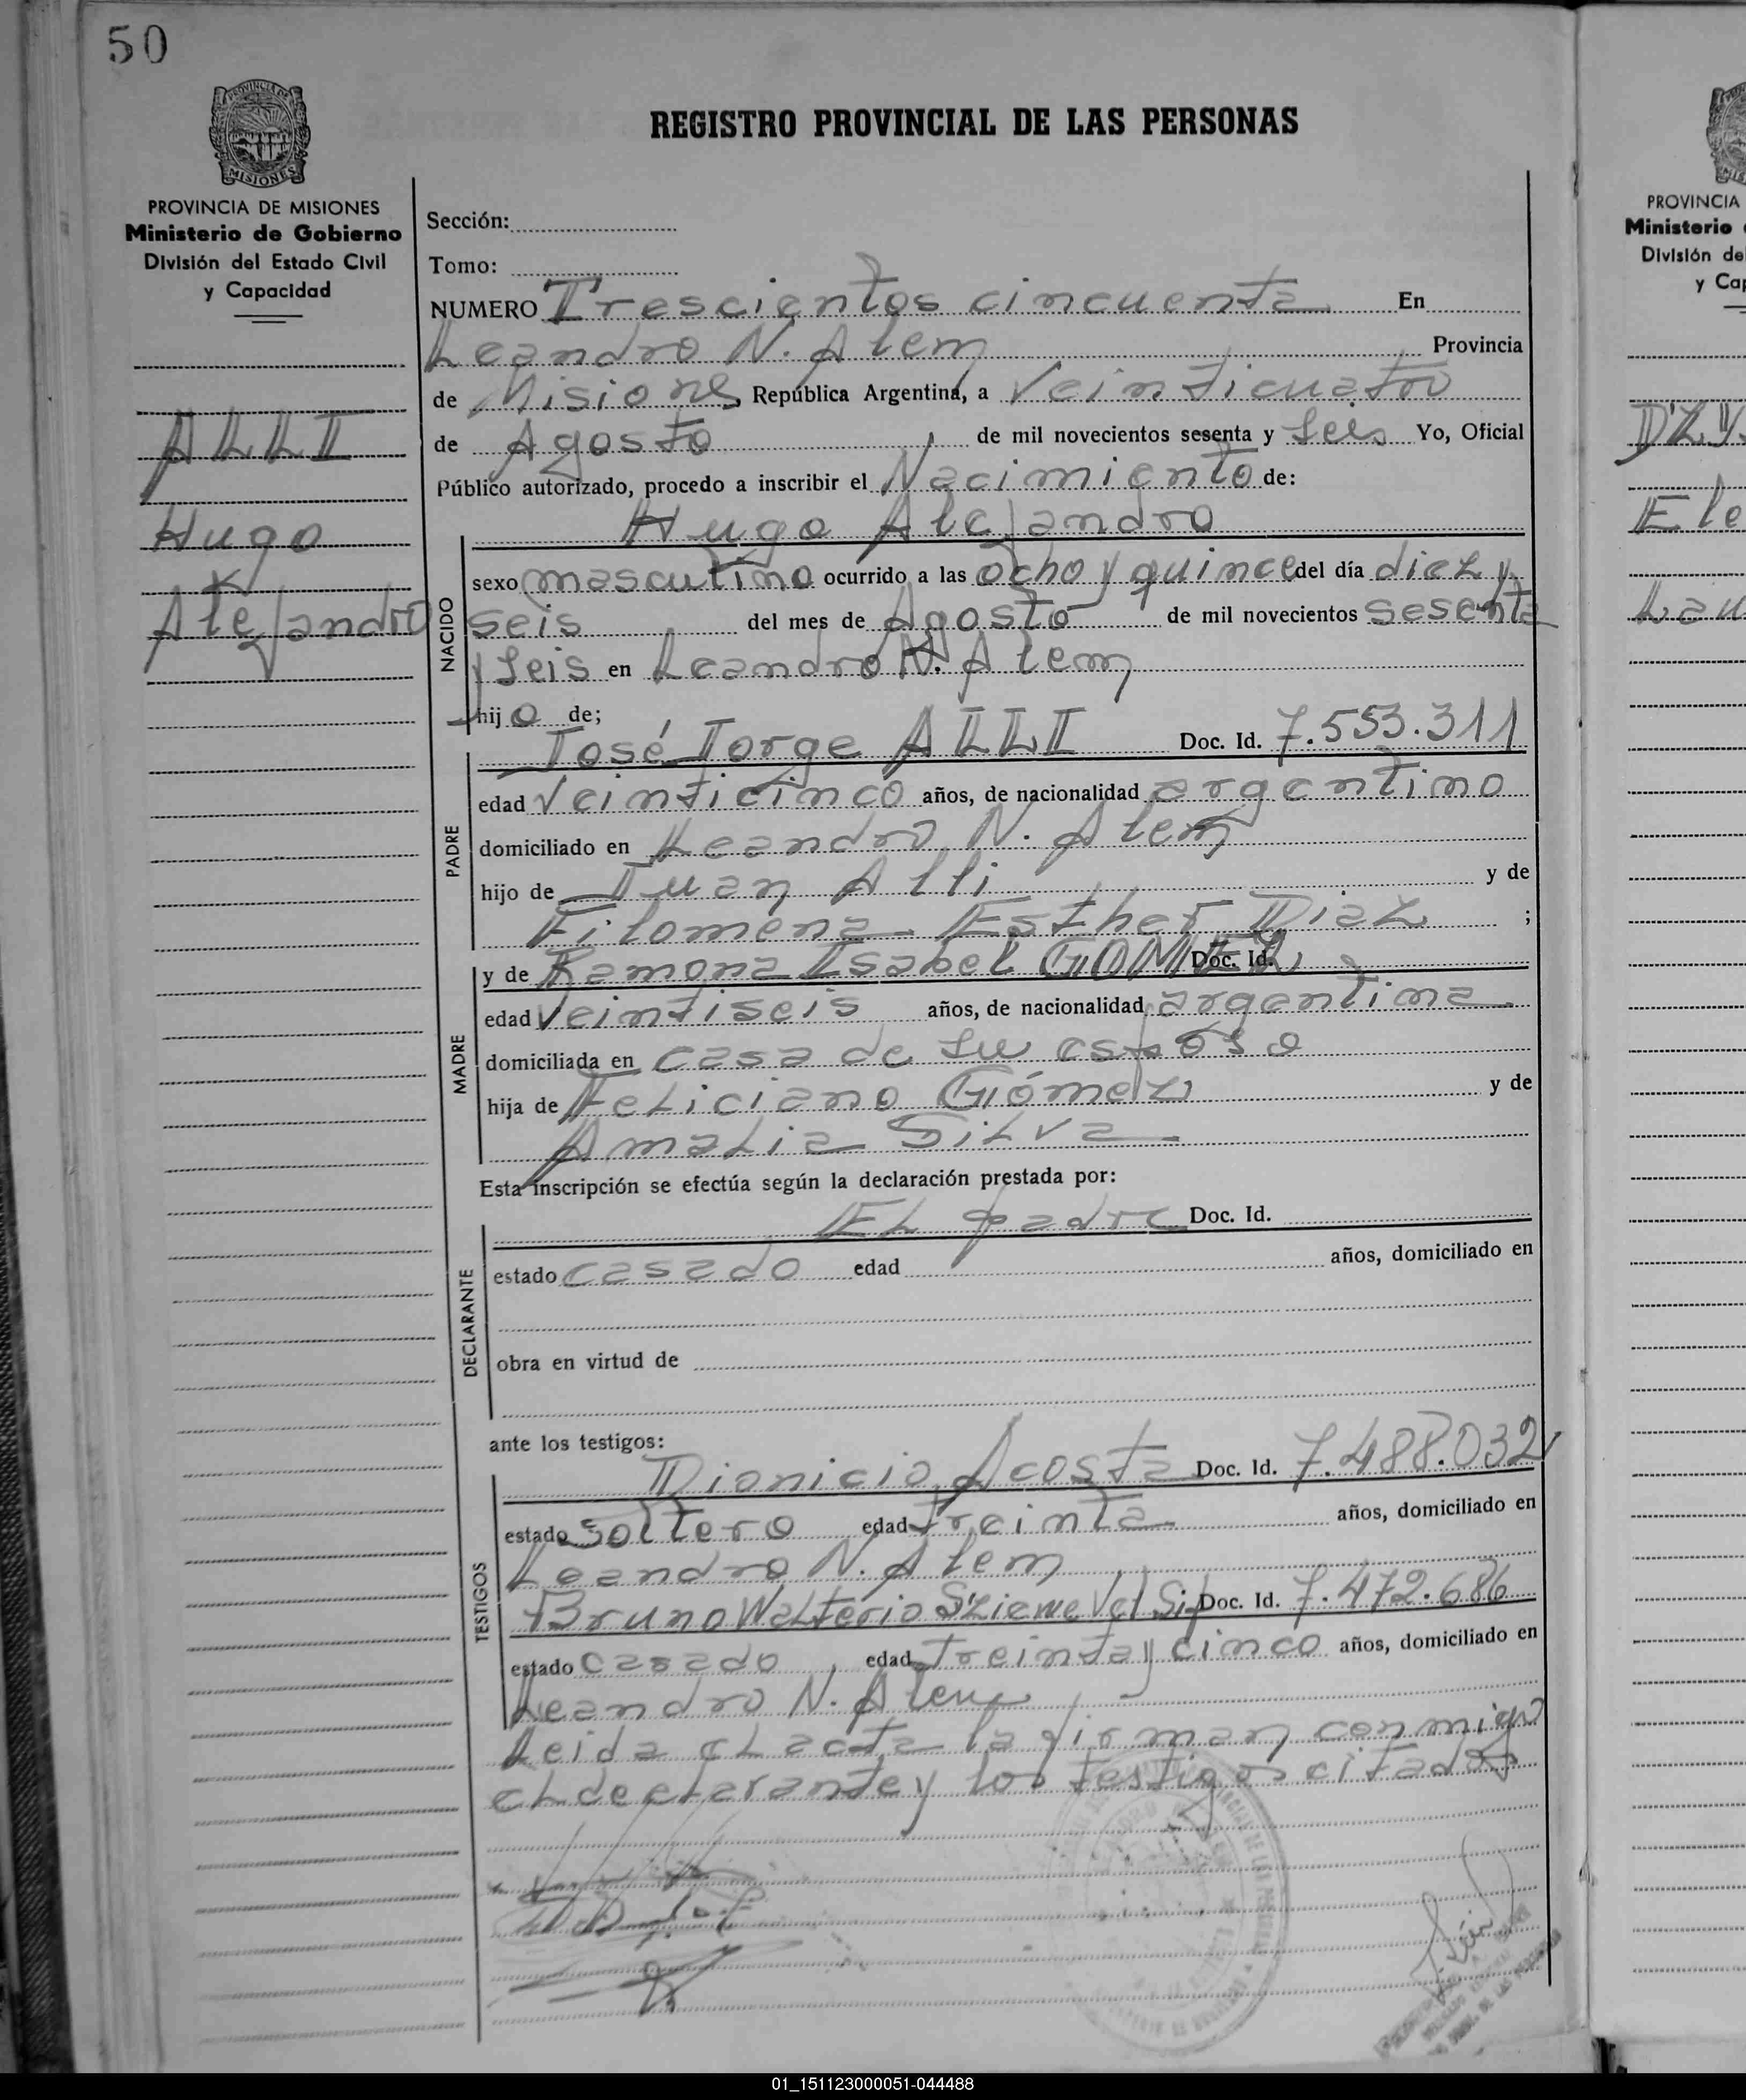 50
PROVINCIA DE MISIONES
Ministerio de Gobierno
División del Estado Civil
y Capacidad
ALLI
Hugo
Alejandro
REGISTRO PROVINCIAL DE LAS PERSONAS
Sección:
Tomo:
NUMERO Trescientos cincuenta En
Leandro N. Alem Provincia
de Misiones República Argentina, a Veinticuatro
de Agosto, de mil novecientos sesenta y seis Yo, Oficial
Público autorizado, procedo a inscribir el Nacimiento de:
Hugo Alejandro
NACIDO
sexo masculino ocurrido a las ocho y quince del día diez y
seis del mes de Agosto de mil novecientos sesenta
y seis en Leandro N. Alem
hijo de;
José Jorge ALLI Doc. Id. 7.553.311
PADRE
edad veinticinco años, de nacionalidad argentino
domiciliado en Leandro N. Alem
hijo de Juan Alli y de
Filomena Esther Diaz ;
MADRE
y de Ramona Isabel GOMEZ Doc. Id.
edad veintiseis años, de nacionalidad argentina
domiciliada en casa de su esposo
hija de Feliciano Gómez y de
Amalia Silva
Esta inscripción se efectúa según la declaración prestada por:
El padre Doc. Id.
DECLARANTE
estado casado edad años, domiciliado en
obra en virtud de
ante los testigos:
Dionicio Acosta Doc. Id. 7.488.032
TESTIGOS
estado soltero edad treinta años, domiciliado en
Leandro N. Alem
Bruno Walterio Doc. Id. 7.472.686
estado casado, edad treinta y cinco años, domiciliado en
Leandro N. Alem
Leida el acta la firman conmigo
el declarante y los testigos citados
PROVINCIA
Ministerio
División de
y Cap
Ele
Lau
01_151123000051-044488